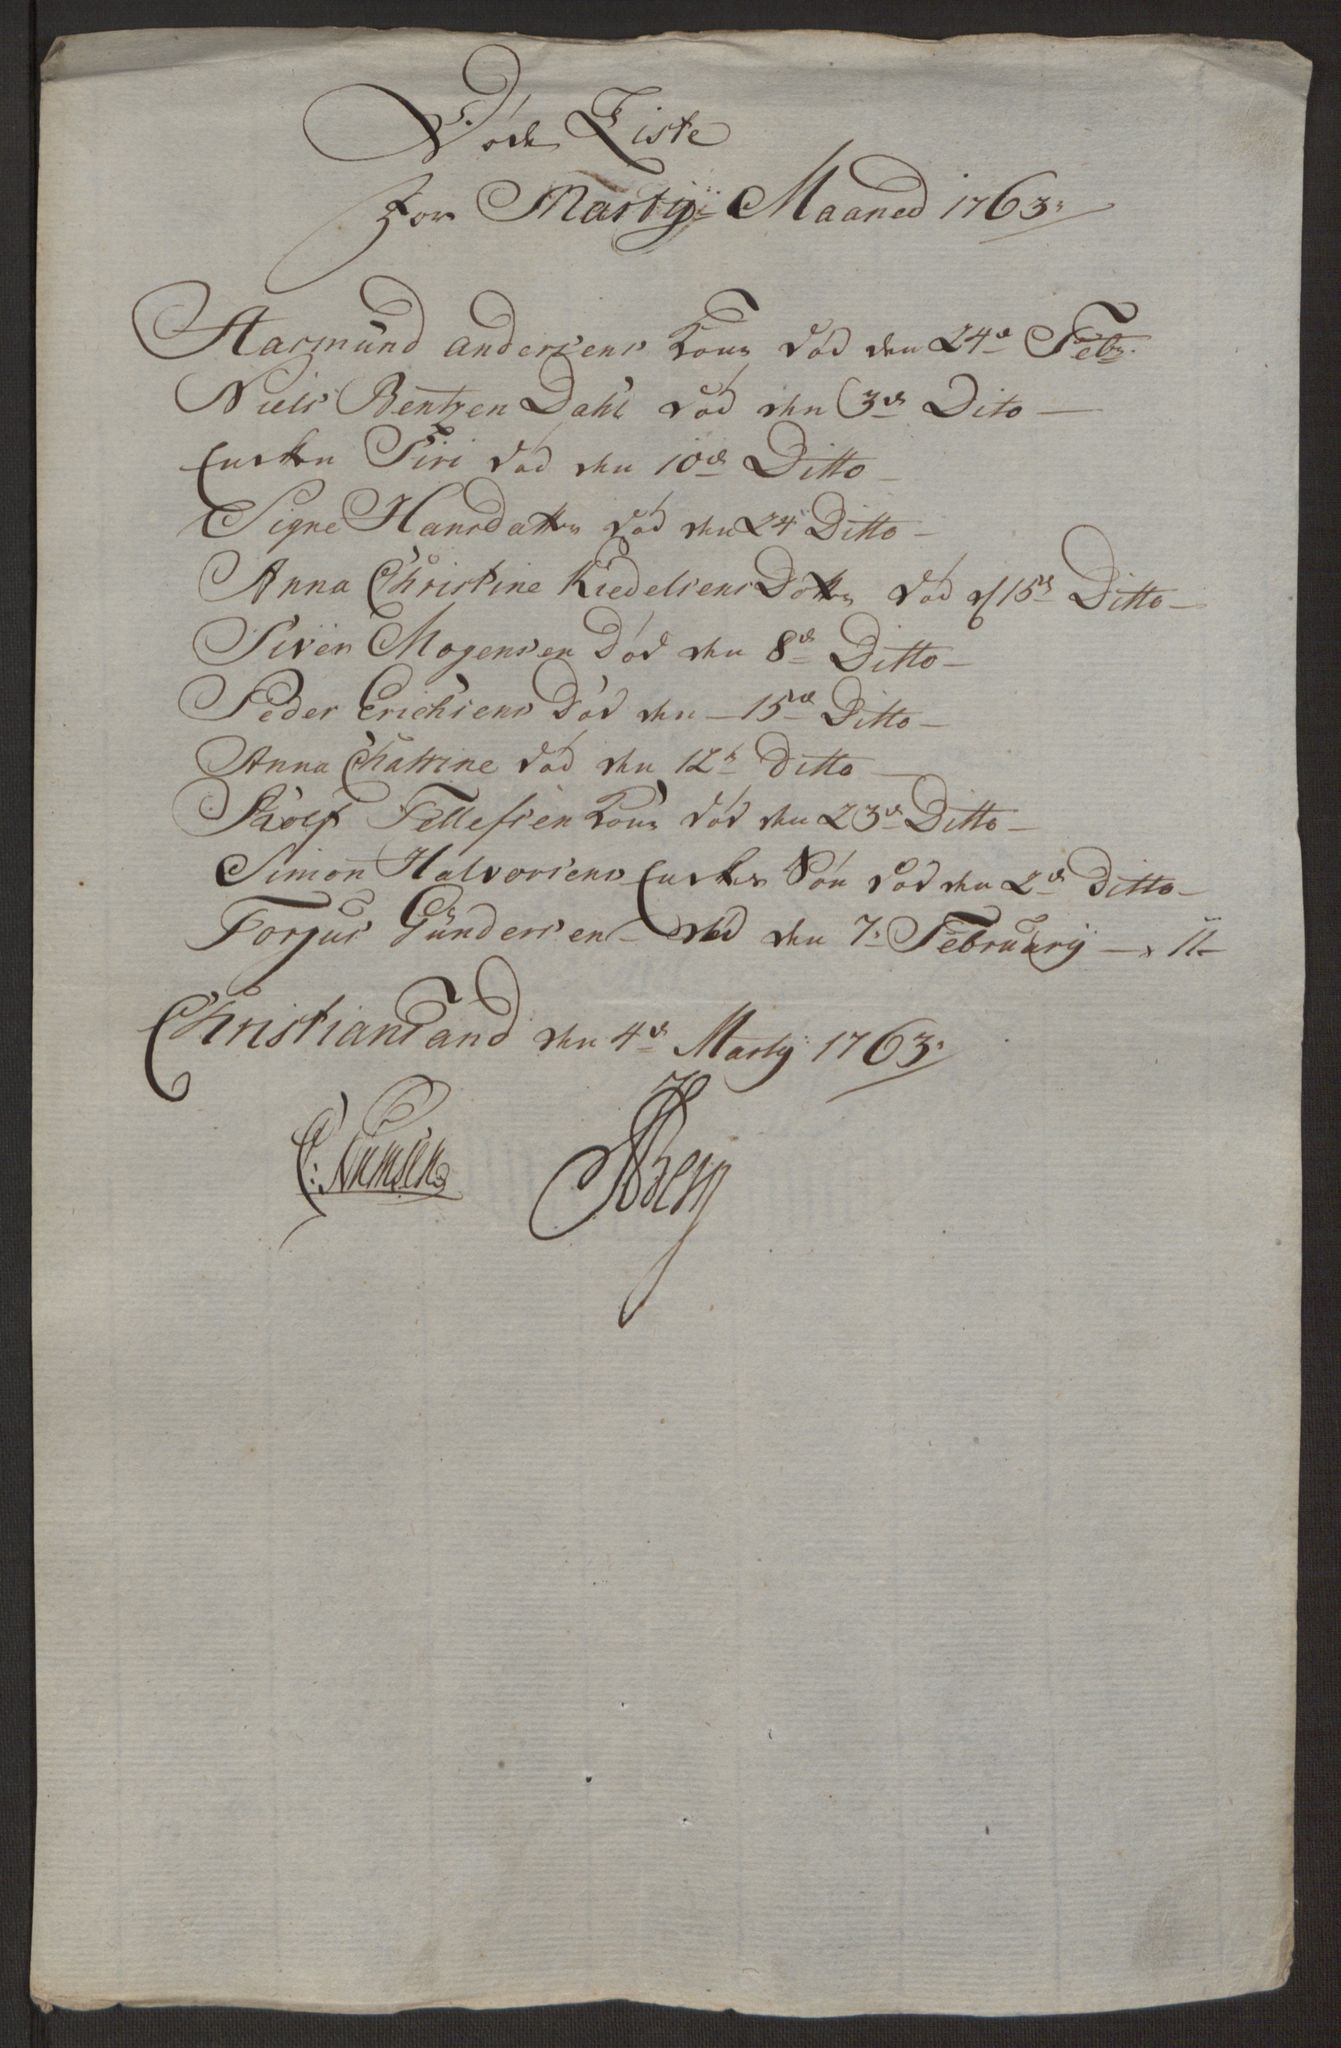 Døde Liste
for Martÿ Maaned 1763
Aasmund andersens Kone død den 24d Feb
Niels Bentzen Dahl død den 3d Dito
Encken Siri død den 10d Ditto
Signe Hansdatter død den 24 Ditto
Anna Christine Kiedelsens Dotter død d 15d Ditto
Siver Mogensen Død den 8d Ditto
Peder Erichsens Død den 15d Ditto
Anna Chatrine død den 12t Ditto
Rolf Tellefsen Kone død den 23d Ditto
Simon Halvorsens Enckes Søn død den 2d Ditto
Torjus Gundersen død den 7 Februarÿ 11
Christiansand den 4d Martÿ 1763
Berg